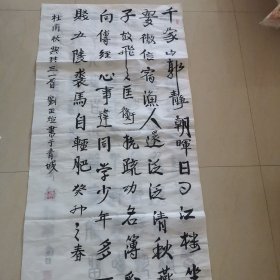 千家山郭靜朝暉日日江樓坐
翠微信宿漁人還泛泛清秋燕
子故飛〻匡衡抗疏功名簿
向傳經心事違同學少年多
賤五陵裘馬自輕肥癸卯之春
杜甫秋興其三一首 劉正煊書于青城